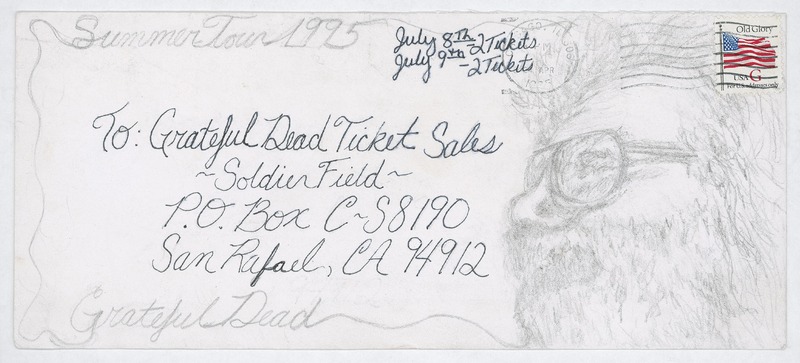 Summer Tour 1995
July 8th - 2 Tickets
July 9th - 2 Tickets
Old Glory
USA G
For U.S. addresses only
To: Grateful Dead Ticket Sales
~Soldier Field~
P.O. Box C-S8190
San Rafael, CA 94912
Grateful Dead